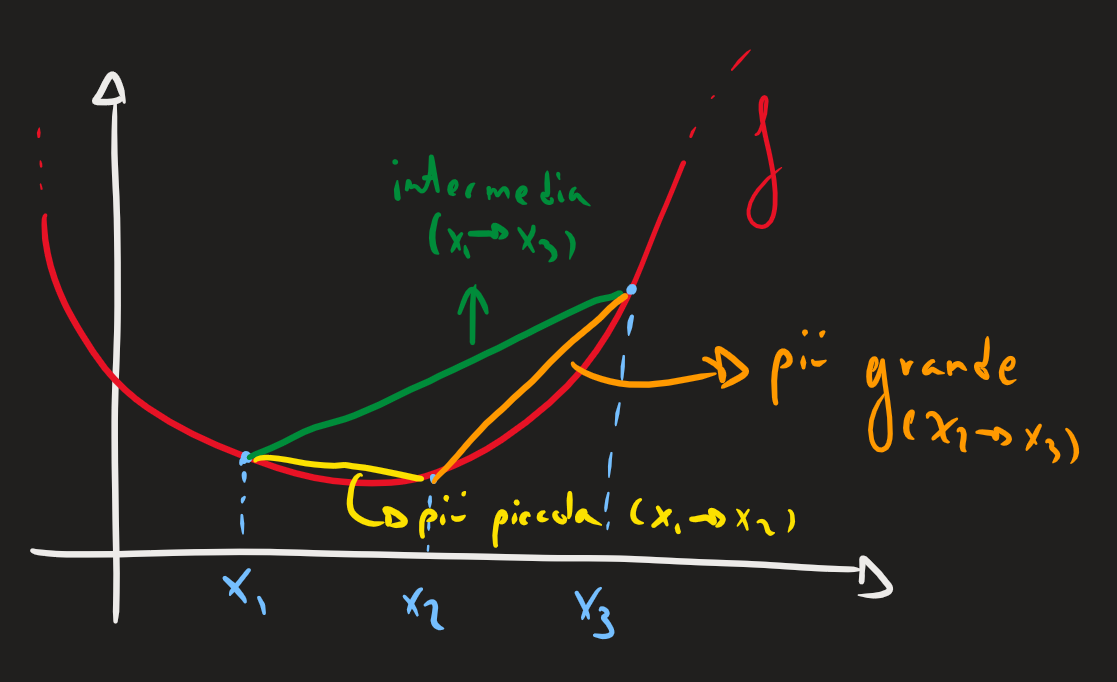 f
intermedia
(x₁→x₃)
più grande
(x₂→x₃)
più piccola (x₁→x₂)
x₁ x₂ x₃